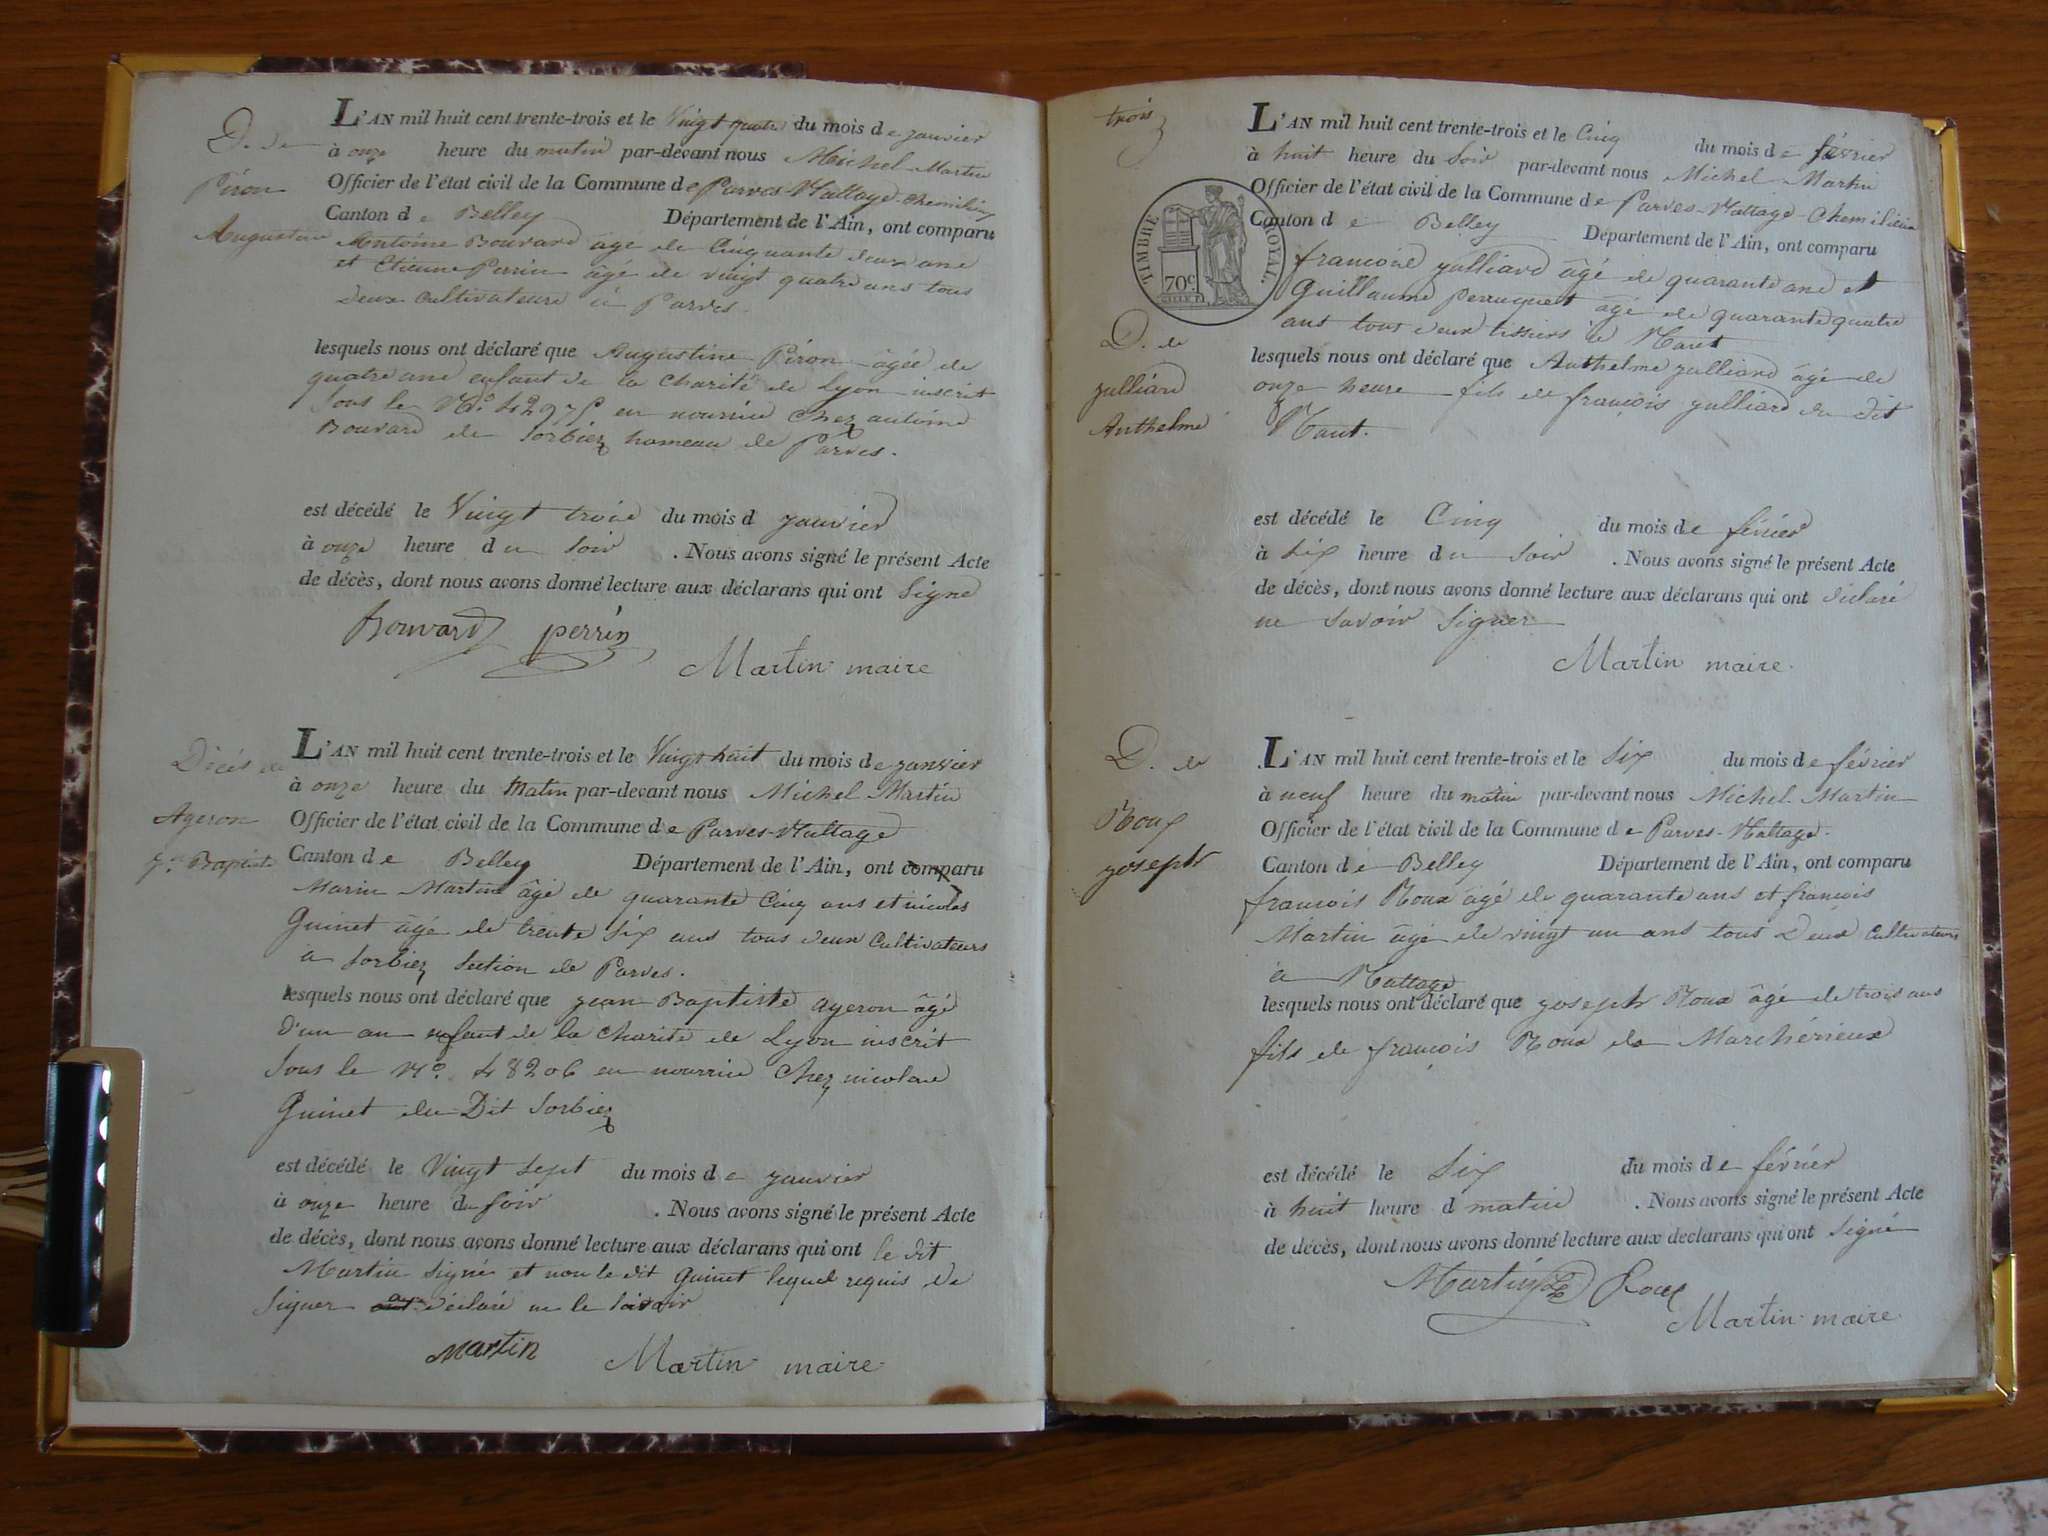 D. de
Piron
Augustine
L'AN mil huit cent trente-trois et le Vingt quatre du mois de janvier
à onze heure du matin par-devant nous Michel Martin
Officier de l'état civil de la Commune de Parves-Nattage-Chemilieu
Canton de Belley Département de l'Ain, ont comparu
Antoine Bouvard âgé de Cinquante deux ans
et Etienne Perrin âgé de vingt quatre ans tous
deux cultivateurs à Parves.
lesquels nous ont déclaré que Augustine Piron âgée de
quatre ans enfant de la Charité de Lyon inscrit
sous le No. en nourrice chez antoine
Bouvard de Sorbiez hameau de Parves.
est décédé le Vingt trois du mois d janvier
à onze heure du soir . Nous avons signé le présent Acte
de décès, dont nous avons donné lecture aux déclarans qui ont signé
Bouvard perrin
Martin maire
Décès de
Ageron
jn. Baptiste
L'AN mil huit cent trente-trois et le Vingt huit du mois de janvier
à onze heure du Matin par-devant nous Michel Martin
Officier de l'état civil de la Commune de Parves-Nattage
Canton de Belley Département de l'Ain, ont comparu
Marin Martin âgé de quarante Cinq ans et nicolas
Guinet âgé de trente six ans tous deux cultivateurs
a Sorbiez section de Parves.
lesquels nous ont déclaré que jean Baptiste ageron âgé
d'un an enfant de la charité de Lyon inscrit
sous le No. 48206 en nourrice chez nicolas
Guinet du Dit Sorbiez
est décédé le Vingt sept du mois de janvier
à onze heure du soir . Nous avons signé le présent Acte
de décès, dont nous avons donné lecture aux déclarans qui ont le dit
Martin signé et non le dit Guinet lequel requis de
signer a déclaré ne le savoir
Martin Martin maire
trois
3
TIMBRE ROYAL
70c.
D. de
julliard
Anthelme
L'AN mil huit cent trente-trois et le Cinq du mois de février
à huit heure du soir par-devant nous Michel Martin
Officier de l'état civil de la Commune de Parves-Nattage-Chemilieu
Canton de Belley Département de l'Ain, ont comparu
francois julliard âgé de quarante ans et
Guillaume peruquet âgé de quarante quatre
ans tous deux tissiers à Nant
lesquels nous ont déclaré que Anthelme julliard âgé de
onze heure fils de françois julliard du dit
Nant.
est décédé le Cinq du mois de février
à six heure du soir . Nous avons signé le présent Acte
de décès, dont nous avons donné lecture aux déclarans qui ont déclaré
ne savoir signer
Martin maire.
D. de
Roux
joseph
L'AN mil huit cent trente-trois et le six du mois de février
à neuf heure du matin par-devant nous Michel Martin
Officier de l'état civil de la Commune de Parves-Nattage.
Canton de Belley Département de l'Ain, ont comparu
francois Roux âgé de quarante ans et francois
Martin âgé de vingt un ans tous Deux cultivateurs
à Nattage
lesquels nous ont déclaré que joseph Roux âgé de trois ans
fils de françois Roux de
est décédé le six du mois de février
à huit heure d matin . Nous avons signé le présent Acte
de décès, dont nous avons donné lecture aux declarans qui ont signé
Martin Roux
Martin maire